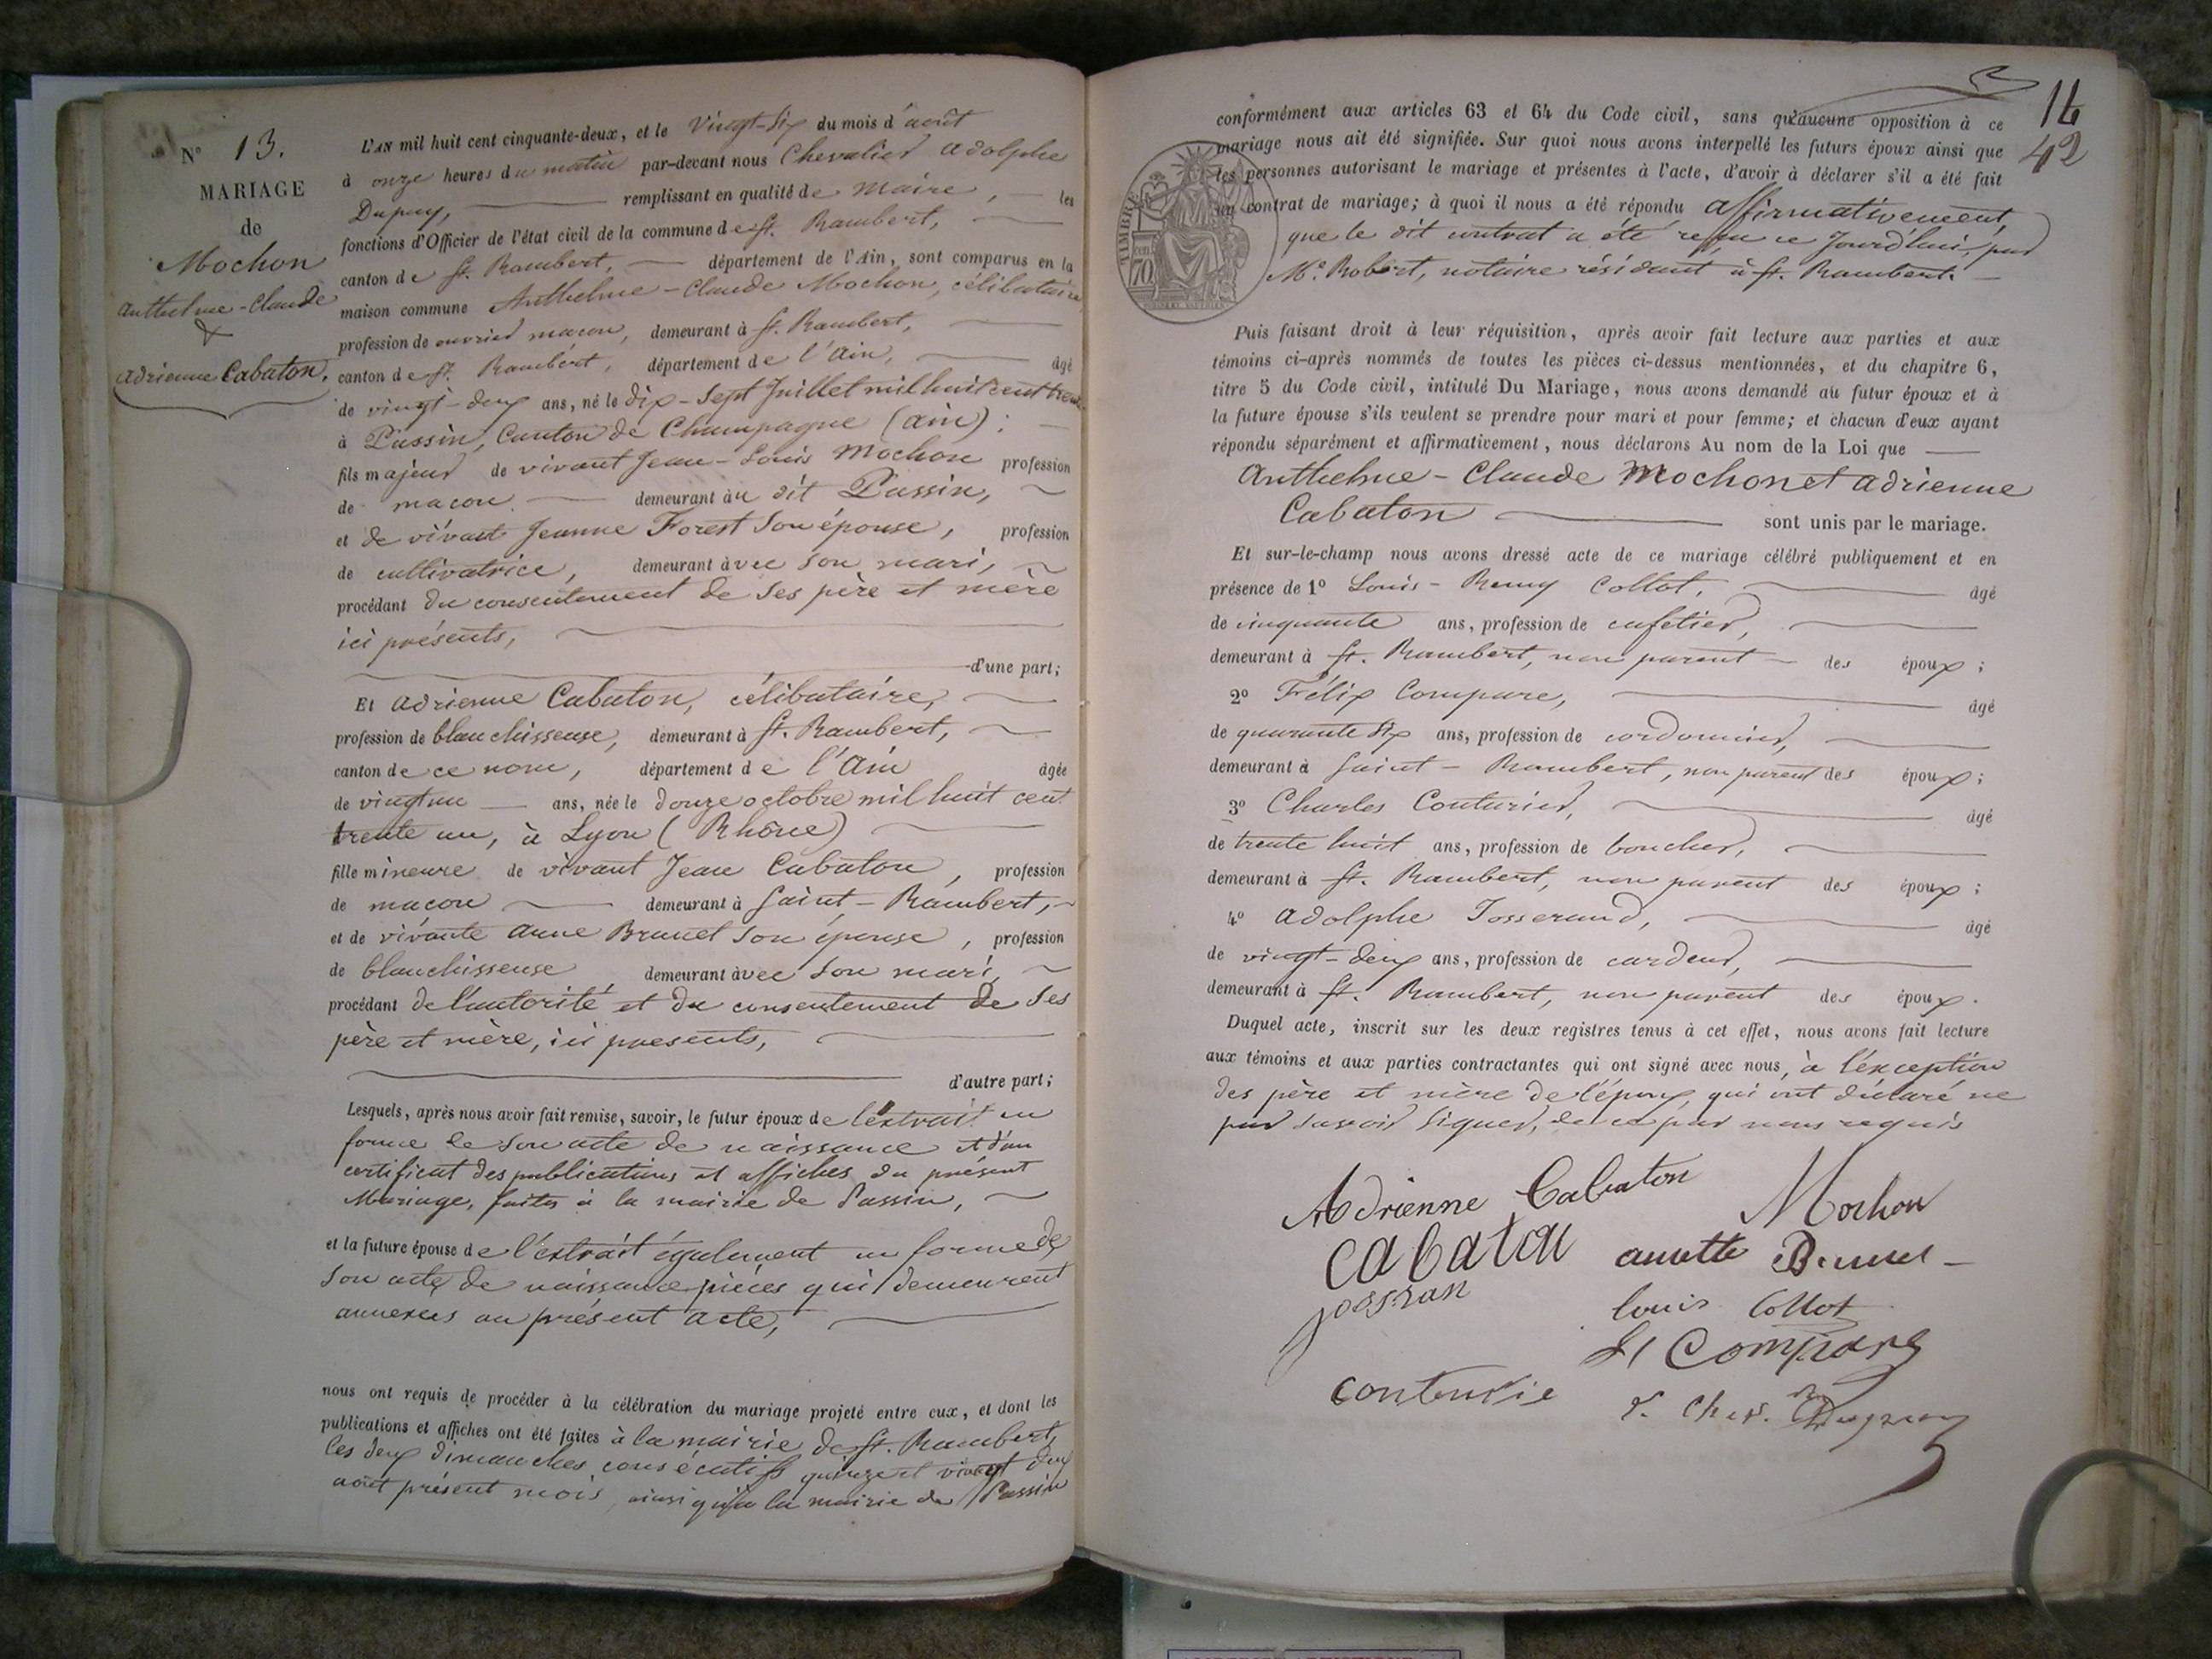 N° 13.
MARIAGE
de
Mochon
Anthelme-Claude
&
Adrienne Cabaton.
L'AN mil huit cent cinquante-deux, et le Vingt-six du mois d'août
à onze heures du matin par-devant nous Chevalier Adolphe
Dupuy, remplissant en qualité de Maire, les
fonctions d'Officier de l'état civil de la commune de St. Rambert,
canton de St. Rambert, département de l'Ain, sont comparus en la
maison commune Anthelme-Claude Mochon, célibataire
profession de ouvrier maçon, demeurant à St. Rambert,
canton de St. Rambert, département de l'Ain, âgé
de vingt-deux ans, né le dix-sept Juillet mil huit cent trente
à Passin, Canton de Champagne (Ain);
fils majeur de vivant Jean-Louis Mochon profession
de maçon demeurant au dit Passin,
et de vivant Jeanne Forest son épouse, profession
de cultivatrice, demeurant avec son mari,
procédant du consentement de ses père et mère
ici présents,
d'une part;
Et Adrienne Cabaton, célibataire,
profession de blanchisseuse, demeurant à St. Rambert,
canton de ce nom, département de l'Ain âgée
de vingt un ans, née le douze octobre mil huit cent
trente un, à Lyon (Rhône)
fille mineure de vivant Jean Cabaton, profession
de macon demeurant à Saint-Rambert,
et de vivante Anne Brunet son épouse, profession
de blanchisseuse demeurant avec son mari,
procédant de l'autorité et du consentement de ses
père et mère, ici presents,
d'autre part;
Lesquels, après nous avoir fait remise, savoir, le futur époux de l'extrait en
forme de son acte de naissance et d'un
certificat des publications et affiches du présent
Mariage, faites à la mairie de Passin,
et la future épouse de l'extrait également en forme de
son acte de naissance pièces qui demeurent
annexées au présent acte,
nous ont requis de procéder à la célébration du mariage projeté entre eux, et dont les
publications et affiches ont été faites à la mairie de St. Rambert,
les deux dimanches consécutifs quinze et vingt deux
août présent mois, ainsi qu'à la mairie de Passin
14
42
conformément aux articles 63 et 64 du Code civil, sans qu'aucune opposition à ce
mariage nous ait été signifiée. Sur quoi nous avons interpellé les futurs époux ainsi que
les personnes autorisant le mariage et présentes à l'acte, d'avoir à déclarer s'il a été fait
un contrat de mariage; à quoi il nous a été répondu affirmativement,
que le dit contrat a été reçu ce jourd'hui, par
Me. Robert, notaire résidant à St. Rambert.
TIMBRE
70
Puis faisant droit à leur réquisition, après avoir fait lecture aux parties et aux
témoins ci-après nommés de toutes les pièces ci-dessus mentionnées, et du chapitre 6,
titre 5 du Code civil, intitulé Du Mariage, nous avons demandé au futur époux et à
la future épouse s'ils veulent se prendre pour mari et pour femme; et chacun d'eux ayant
répondu séparément et affirmativement, nous déclarons Au nom de la Loi que
Anthelme-Claude Mochon et Adrienne
Cabaton sont unis par le mariage.
Et sur-le-champ nous avons dressé acte de ce mariage célébré publiquement et en
présence de 1° Louis-Remy Collot, âgé
de cinquante ans, profession de cafetier,
demeurant à St. Rambert, non parent des époux;
2° Félix Compare, âgé
de quarante six ans, profession de cordonnier,
demeurant à Saint-Rambert, non parent des époux;
3° Charles Couturier, âgé
de trente huit ans, profession de boucher,
demeurant à St. Rambert, non parent des époux;
4° Adolphe Josserand, âgé
de vingt-deux ans, profession de cardeur,
demeurant à St. Rambert, non parent des époux.
Duquel acte, inscrit sur les deux registres tenus à cet effet, nous avons fait lecture
aux témoins et aux parties contractantes qui ont signé avec nous, à l'exception
des père et mère de l'époux, qui ont déclaré ne
pas savoir signer, de ce par nous requis
Adrienne Cabaton Mochon
Cabaton Brunet
jossran louis Collot
Compare
Couturie Chev. Dupuy